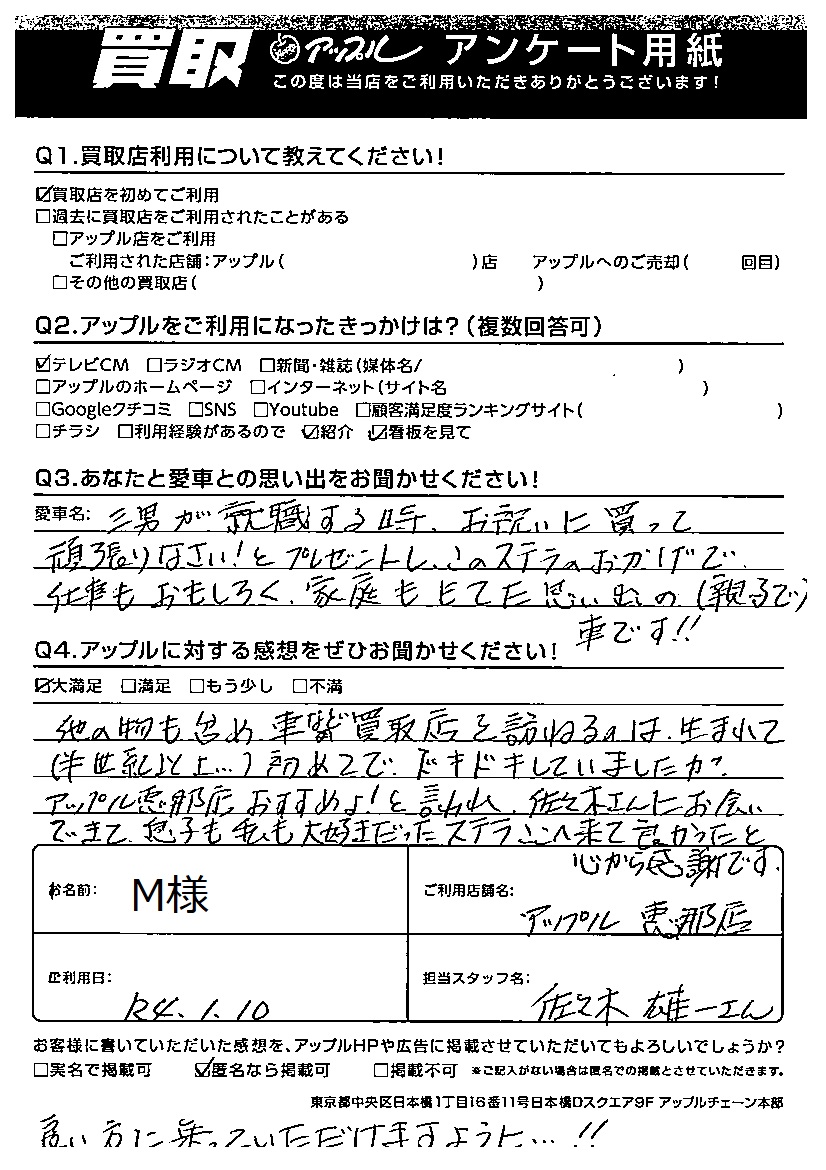 買取 アップル アンケート用紙
この度は当店をご利用いただきありがとうございます!
Q1.買取店利用について教えてください!
☑買取店を初めてご利用
□過去に買取店をご利用されたことがある
□アップル店をご利用
ご利用された店舗:アップル( )店 アップルへのご売却( 回目)
□その他の買取店( )
Q2.アップルをご利用になったきっかけは?(複数回答可)
☑テレビCM □ラジオCM □新聞・雑誌(媒体名/ )
□アップルのホームページ □インターネット(サイト名 )
□Googleクチコミ □SNS □Youtube □顧客満足度ランキングサイト( )
□チラシ □利用経験があるので ☑紹介 ☑看板を見て
Q3.あなたと愛車との思い出をお聞かせください!
愛車名: 三男が就職する時、お祝いに買って
頑張りなさい!とプレゼントし、このステラのおかげで、
仕事もおもしろく、家庭ももてた思い出の(親子で)
車です!!
Q4.アップルに対する感想をぜひお聞かせください!
☑大満足 □満足 □もう少し □不満
他の物も含め車など買取店を訪ねるのは、生まれて
(半世紀以上…)初めてで、ドキドキしていましたが、
アップル恵那店おすすめよ!と言われ、佐々木さんにお会い
できて、息子も私も大好きだったステラここへ来て良かったと
心から感謝です。
お名前: M様
ご利用店舗名:
アップル 恵那店
ご利用日:
R4.1.10
担当スタッフ名:
佐々木 雄一さん
お客様に書いていただいた感想を、アップルHPや広告に掲載させていただいてもよろしいでしょうか?
□実名で掲載可 ☑匿名なら掲載可 □掲載不可 ※ご記入がない場合は匿名での掲載とさせていただきます。
東京都中央区日本橋1丁目16番11号日本橋Dスクエア9F アップルチェーン本部
良い方に乗っていただけますように…!!